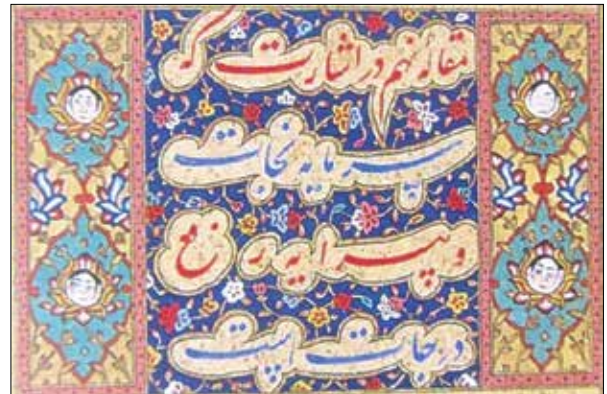 مقالهٔ نهم در اشارت که
سرمایه نجات
و پیرایه رفع
درجات است